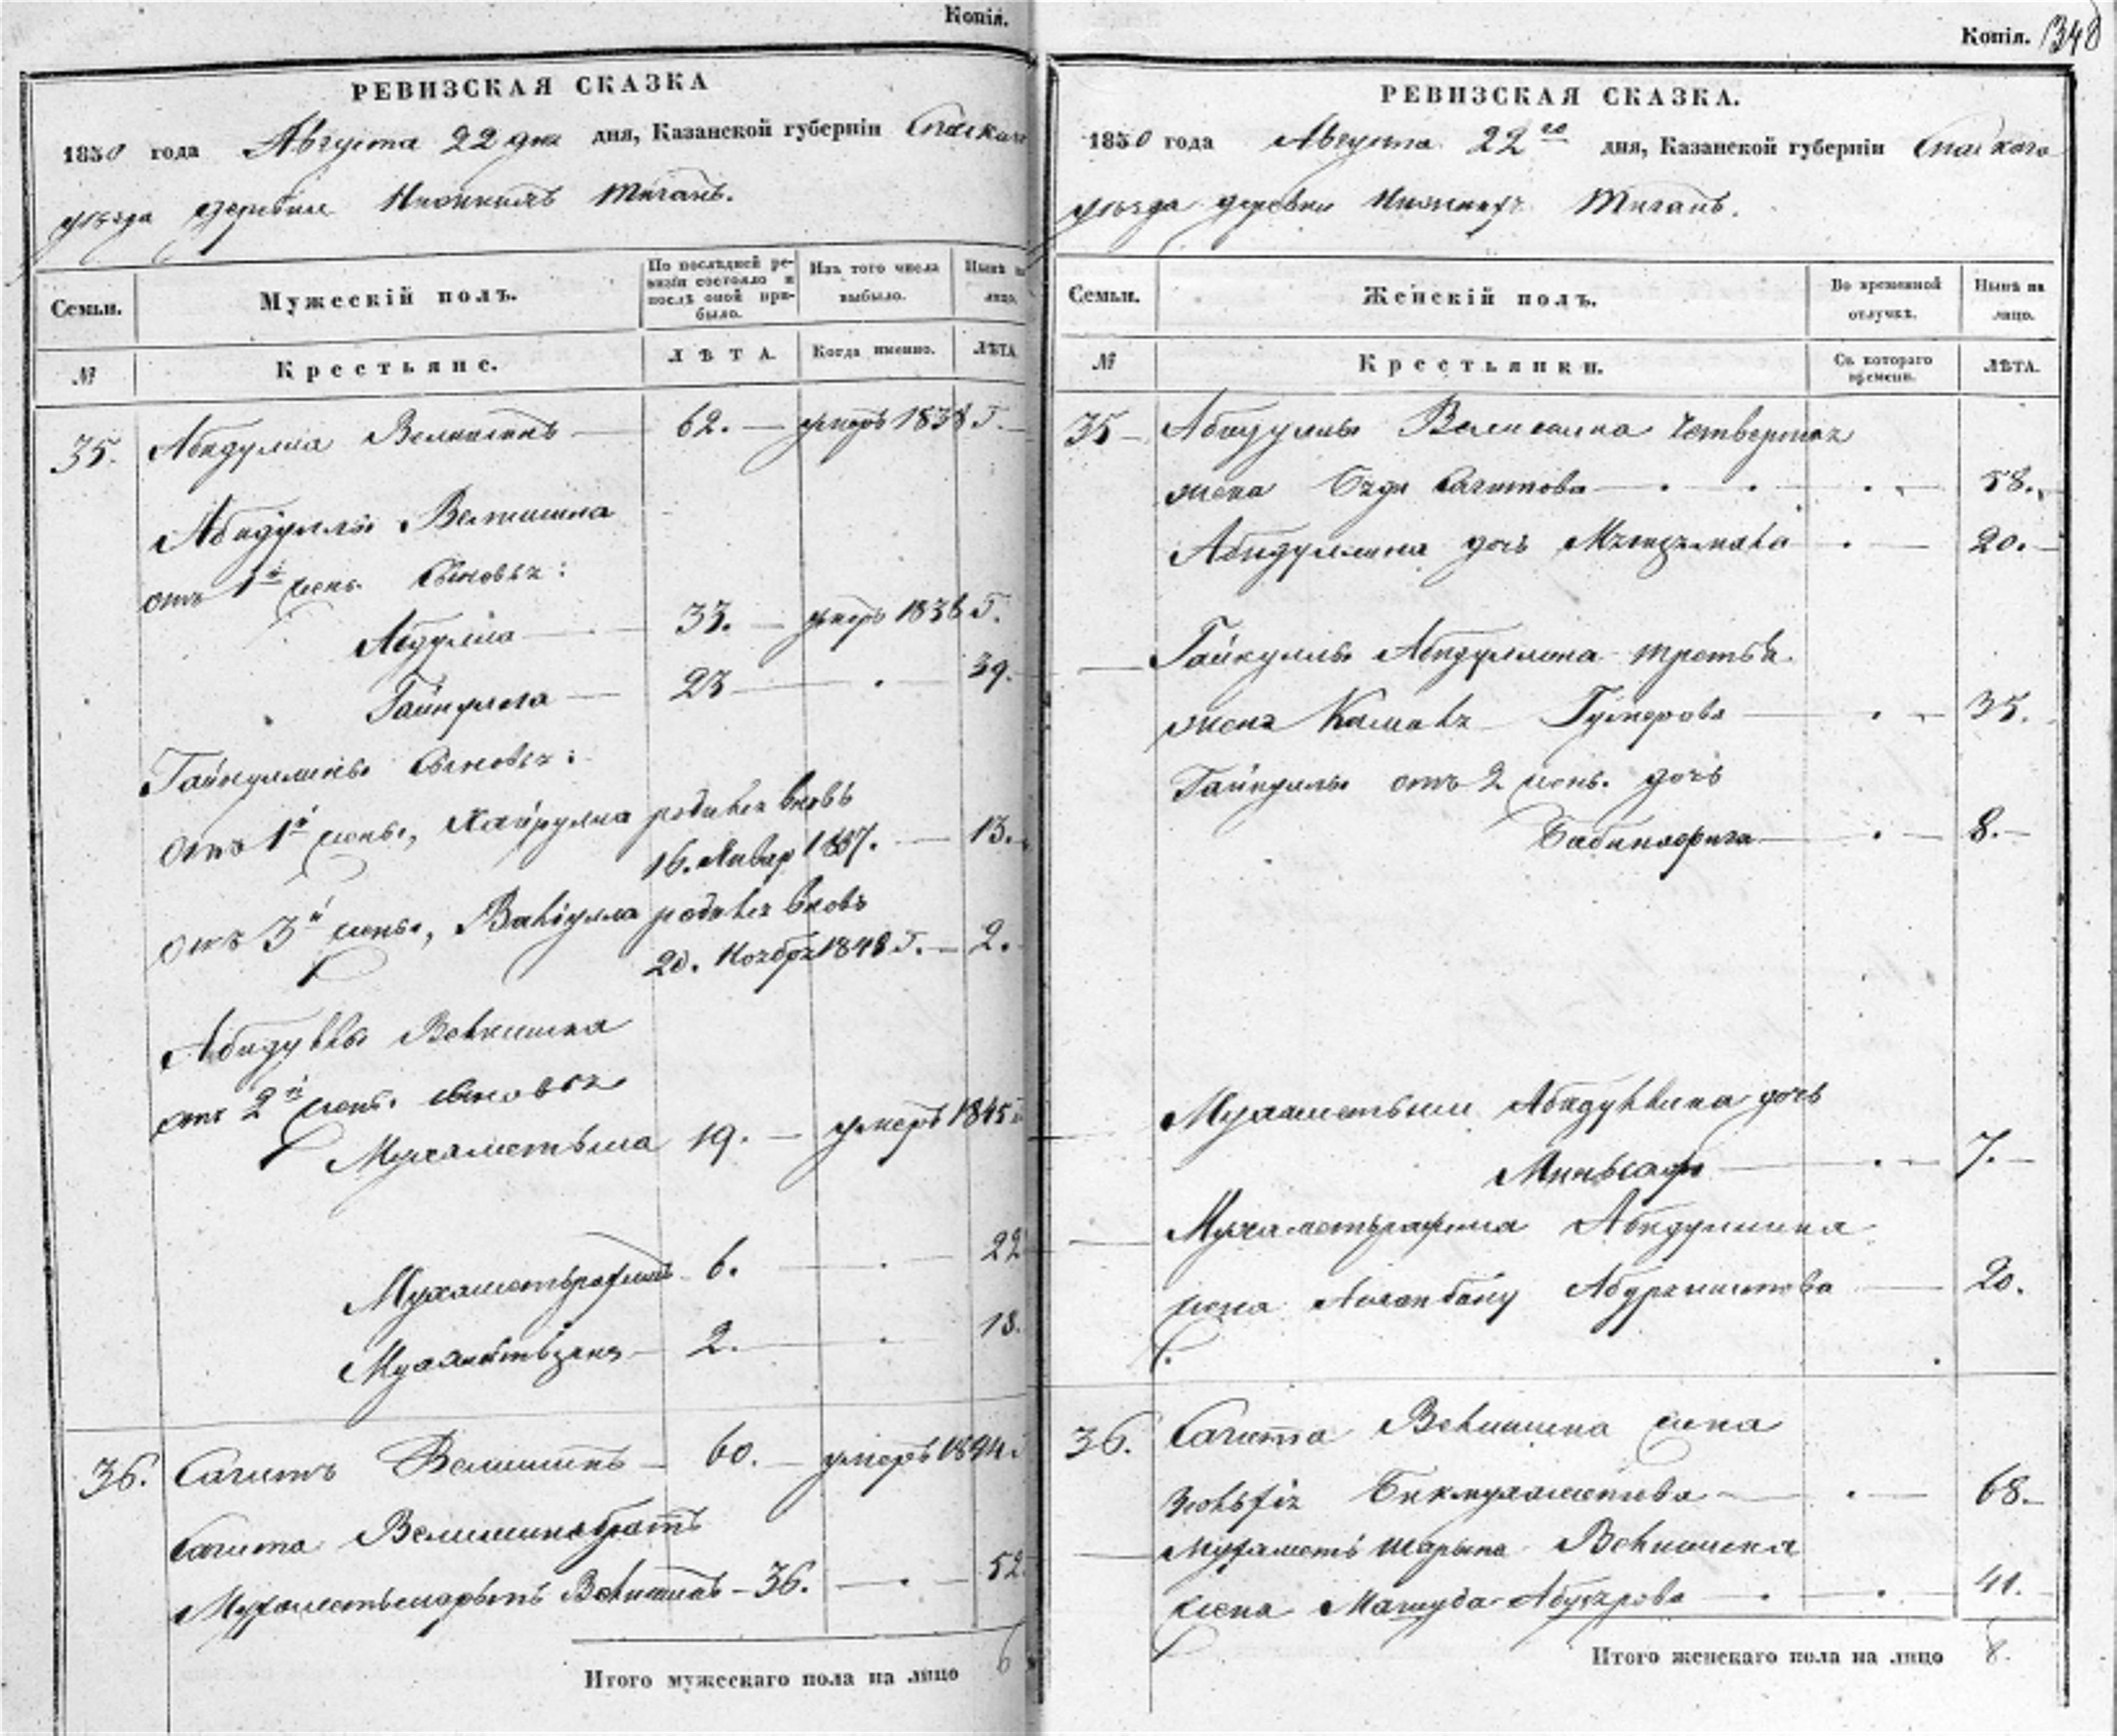 Копія.
РЕВИЗСКАЯ СКАЗКА
1850 года Августа 22 дня дня, Казанской губерніи Спаскаго
уѣзда деревни Нижнихъ Тиганъ.
Семьи. Мужескій полъ. По послѣдней ревизіи состояло и послѣ оной прибыло. Изъ того числа выбыло. Нынѣ на лицо.
№ Крестьяне. ЛѢТА. Когда именно. ЛѢТА.
35. Абидулла Велишинъ 62. умеръ 1838 г.
Абидуллы Велишина
отъ 1й жены сыновья:
Абдулла 33. умеръ 1838 г.
Гайнулла 23 39.
Гайнуллины сыновья:
отъ 1й жены, Хайрулла родился вновь
16. Январ 1837. 13.
отъ 3й жены, Валиулла родился вновь
20. Ноября 1848 г. 2.
Абидуллы Велишина
отъ 2й жены сыновья
Мухаметьша 19. умеръ 1845 г
Мухаметьрафикъ 6. 22
Мухаметьзянъ 2. 18.
36. Сагитъ Велишинъ 60. умеръ 1844 г
Сагита Велишина братъ
Мухаметьшарыпъ Велишинъ 36. 52
Итого мужескаго пола на лицо 6
Копія. 348
РЕВИЗСКАЯ СКАЗКА.
1850 года Августа 22го дня, Казанской губерніи Спаскаго
уѣзда деревни Нижнихъ Тиганъ.
Семьи. Женскій полъ. Во временной отлучкѣ. Нынѣ на лицо.
№ Крестьянки. Съ котораго времени. ЛѢТА.
35 Абидуллы Велишина четвертая
жена Сагитова 58.
Абидуллина дочь 20.
Гайнуллы Абидуллина третья
жена Гумерова 35.
Гайнуллы отъ 2 жены дочь
8.
Мухаметьши Абидуллина дочь
Миньсафа 7.
Мухаметьрафика Абидуллина
жена 20.
36. Сагита Велишина жена
Бикмухаметева 68.
Мухаметь шарыпа Велишина
жена 41.
Итого женскаго пола на лицо 8.